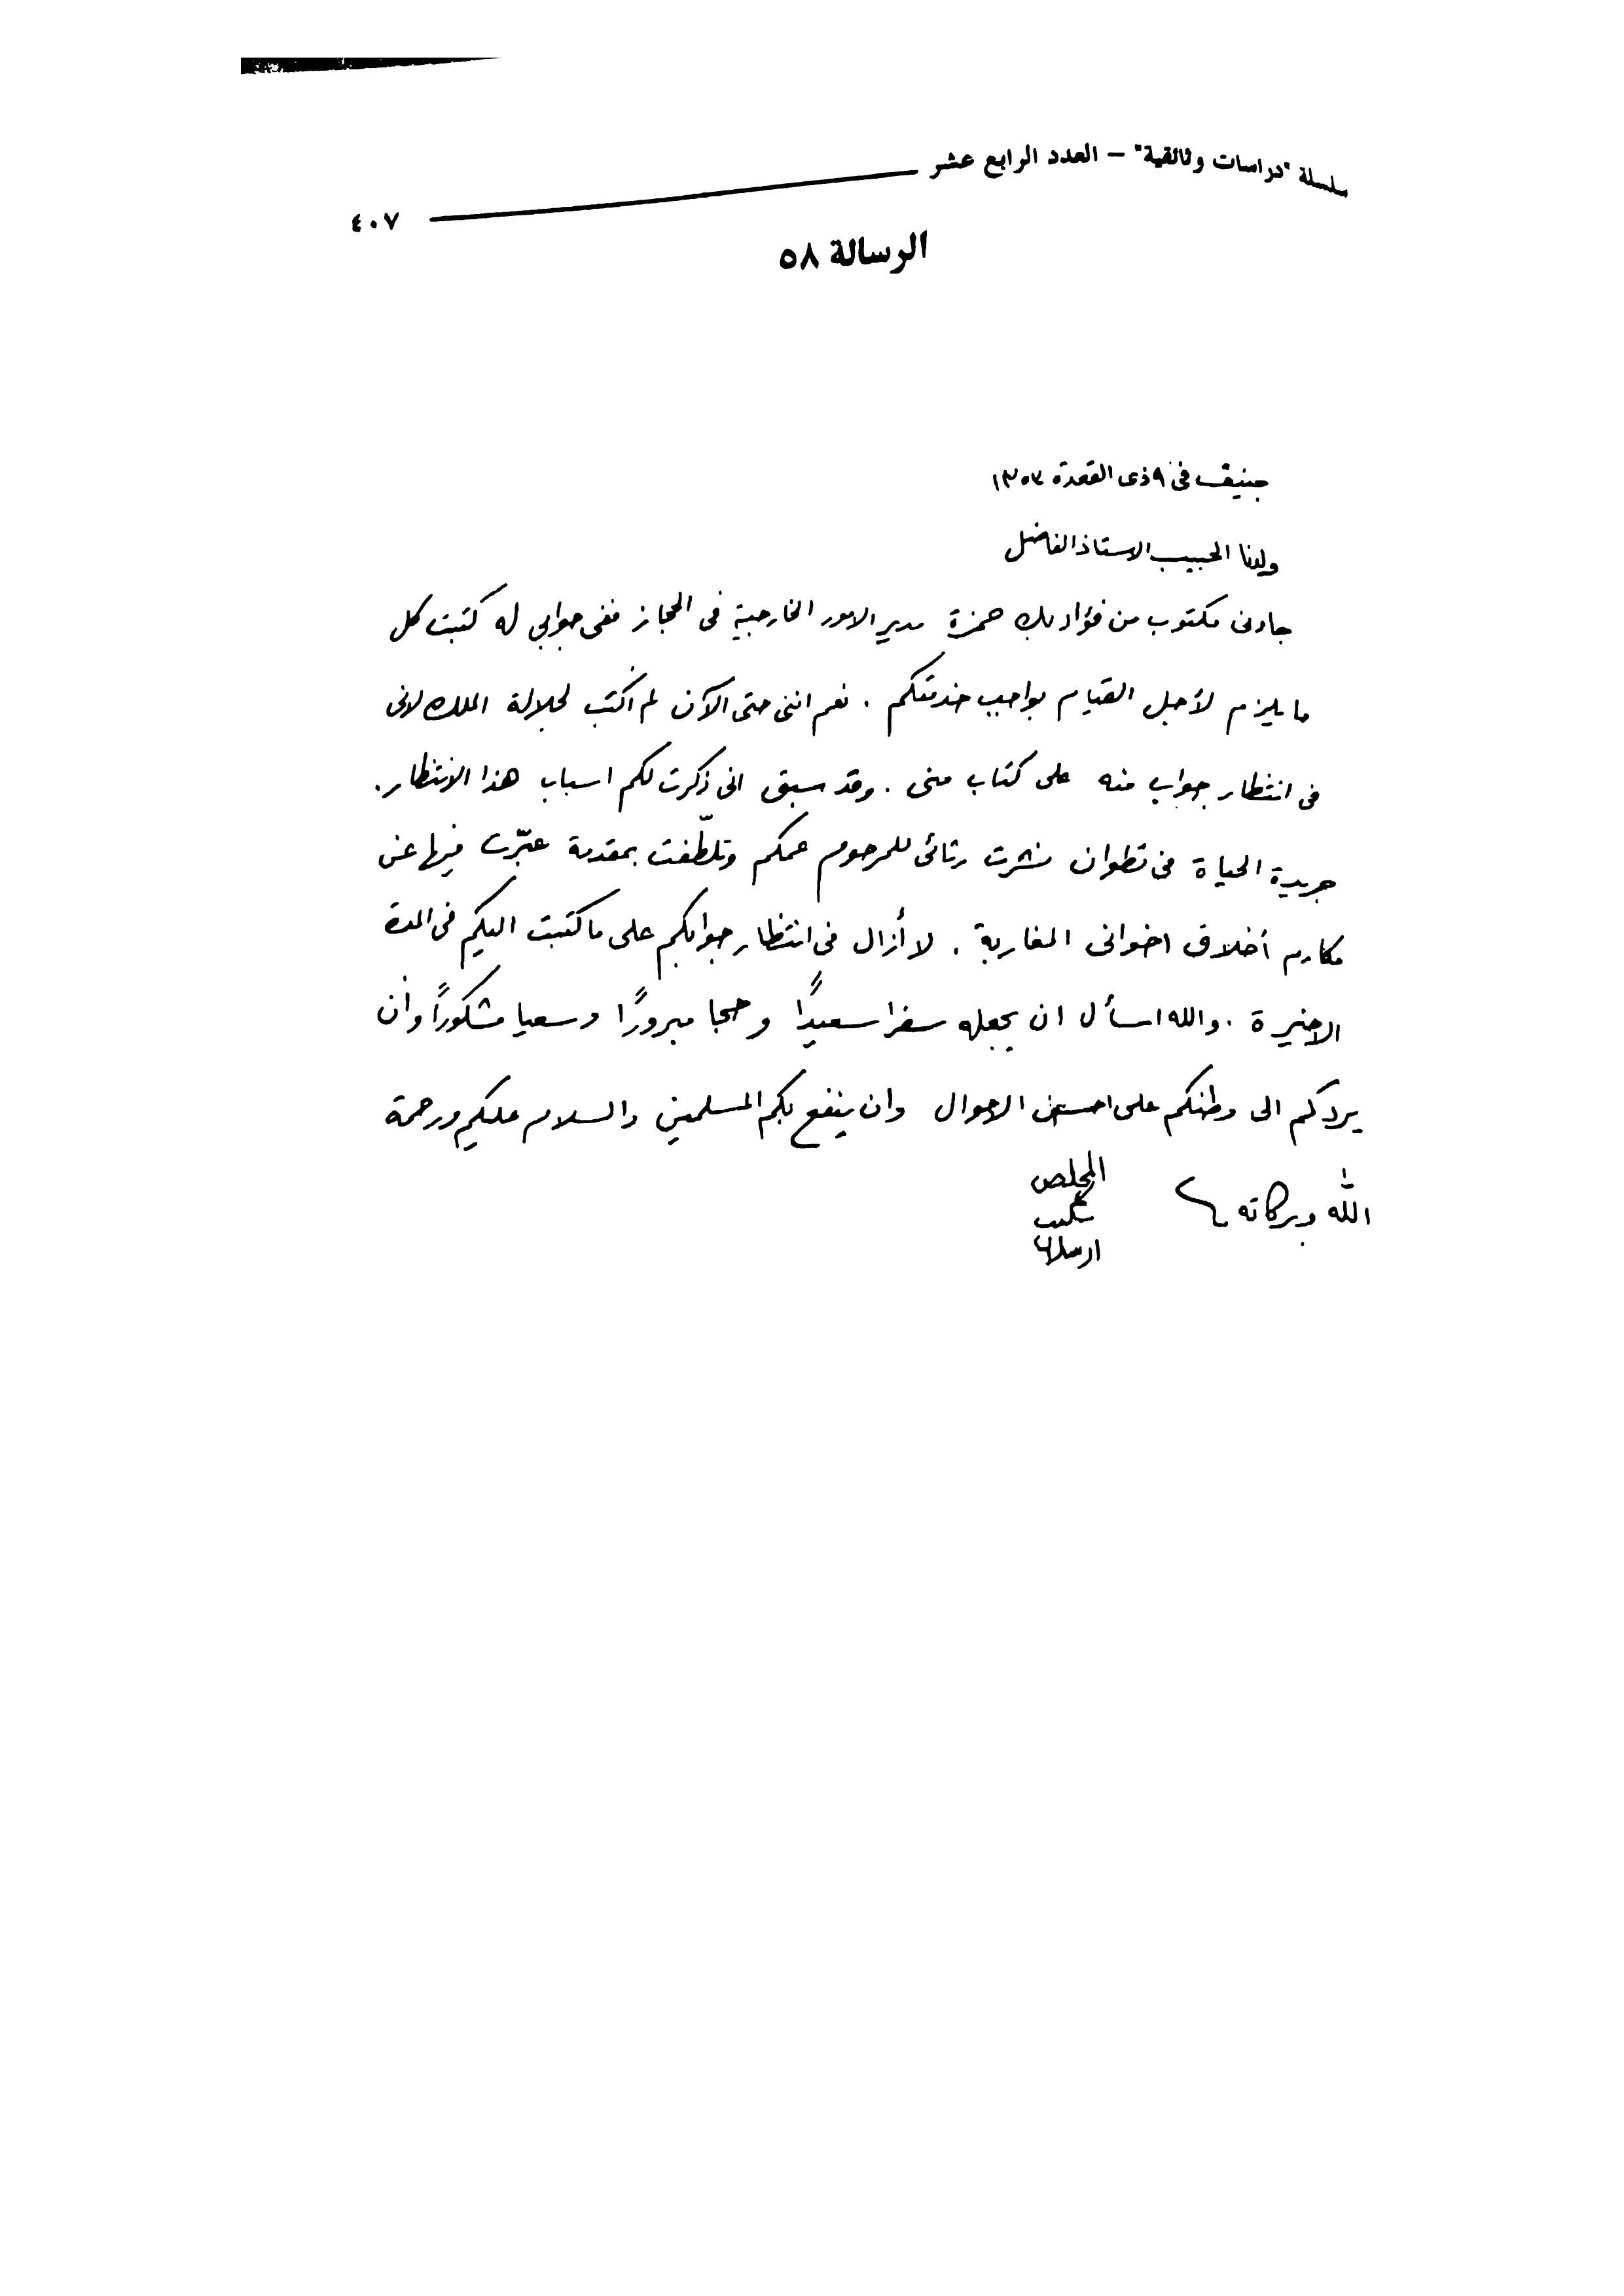 سلسلة "دراسات وثائقية" – العدد الرابع عشر
٤٠٧
الرسالة ٥٨
جنيف في ٩ ذى القعدة ١٣٥٣
ولدنا الحبيب الاستاذ الفاضل
جاءنى مكتوب من فؤاد بك حمزة مدير الامور الخارجية فى الحجاز ففى جوابي له كتبت كل
ما يلزم لأجل القيام بواجب خدمتكم . نعم اننى حتى الآن لم أكتب لجلالة الملك لانى
فى انتظار جواب منه على كتاب منى . وقد سبق انى ذكرت لكم اسباب هذا الانتظار .
جريدة الحياة فى تطوان نشرت رثائى للمرحوم عمكم وتلطّفت بمقدمة عبّرت فيها عن
مكارم أخلاق اخوانى المغاربة . لا أزال فى انتظار جوابكم على ما كتبت اليكم فى المدة
الاخيرة . والله اسأل ان يجعله سفرا سعيدًا وحجا مبرورًا وسعيا مشكورًا وأن
يردكم الى وطنكم على احسن الاحوال وان ينفع بكم المسلمين والسلام عليكم ورحمة
الله وبركاته
المخلص
شكيب
ارسلان